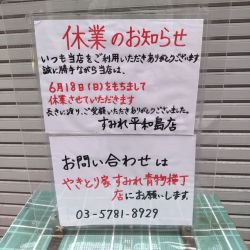 休業のお知らせ
いつも当店をご利用いただきありがとうございます
誠に勝手ながら当店は、
6月18日(日)をもちまして
休業させていただきます
長きに渡り、ご愛顧いただきありがとうございました。
すみれ平和島店
お問い合わせは
やきとり家すみれ青物横丁
店にお願いします
03-5781-8929